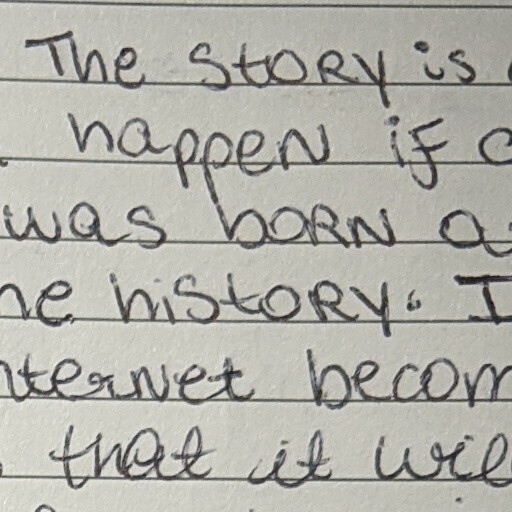 The story is
happen if
was born a
he history. I
nternet becom
that it wil